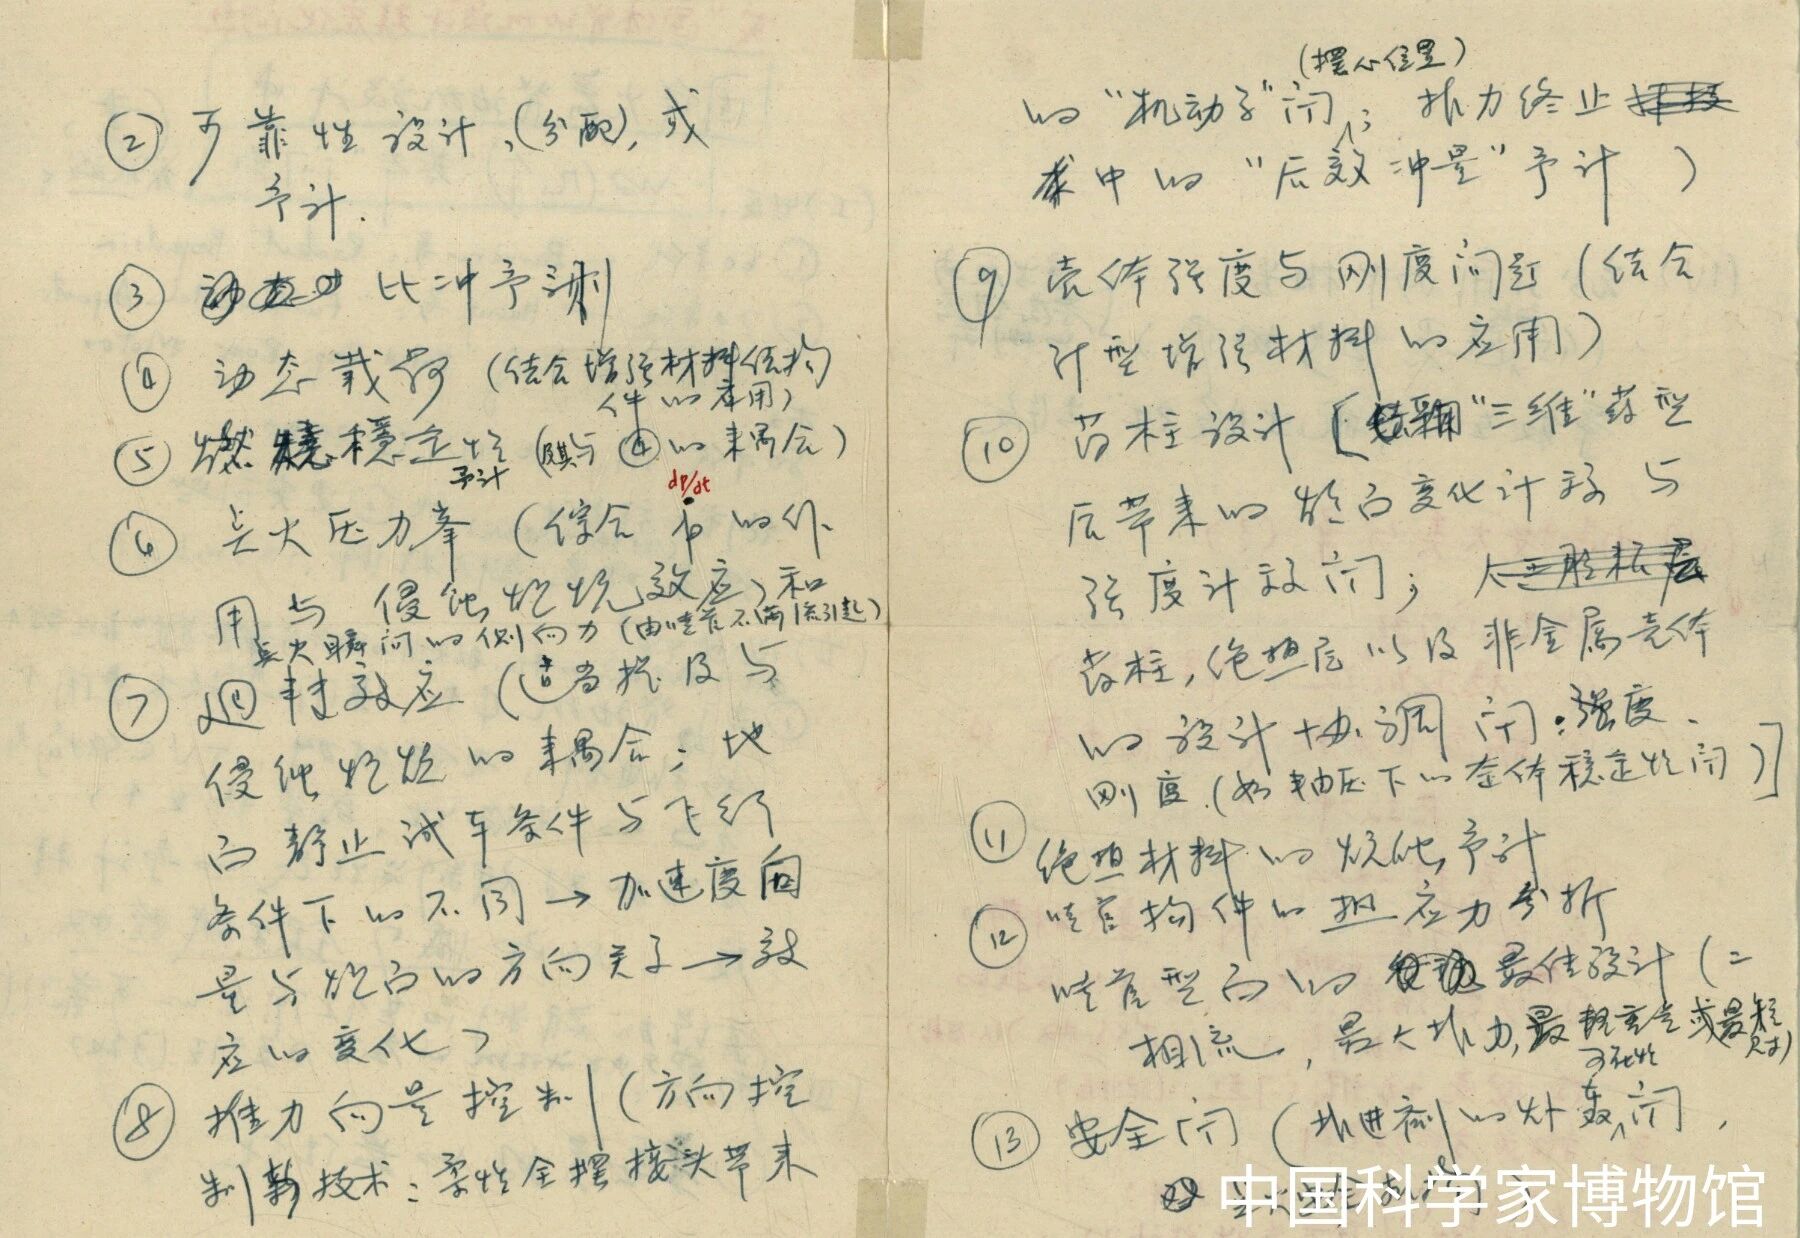 ② 可靠性设计,(分配),或
予计.
③ 比冲予测
④ 动态载荷(结合增强材料结构
件的应用)
⑤ 燃烧稳定性予计(与④的耦合)
dp/dt
⑥ 点火压力峯(综合ṗ的作
用与侵蚀燃烧效应)和
点火瞬间的侧向力(由喷管不满流引起)
⑦ 迴转效应(适当提及与
侵蚀燃烧的耦合;地
面静止试车条件与飞行
条件下的不同→加速度向
量与燃面的方向关系→效
应的变化)
⑧ 推力向量控制(方向控
制新技术:柔性全摆接头带来
(摆心位置)
的“机动子”问;推力终止技
术中的“后效冲量”予计)
⑨ 壳体强度与刚度问题(结合
计型增强材料的应用)
⑩ 药柱设计[采用“三维”药型
后带来的燃面变化计算与
强度计算问;
药柱,绝热层以及非金属壳体
的设计协调问:强度、
刚度.(如轴压下的壳体稳定性问)]
⑪ 绝热材料的烧蚀予计
⑫ 喷管构件的热应力分析
喷管型面的最佳设计(二
相流,最大推力,最轻重量或最短
尺寸)
可能性
⑬ 安全问(推进剂的爆轰问,
中国科学家博物馆